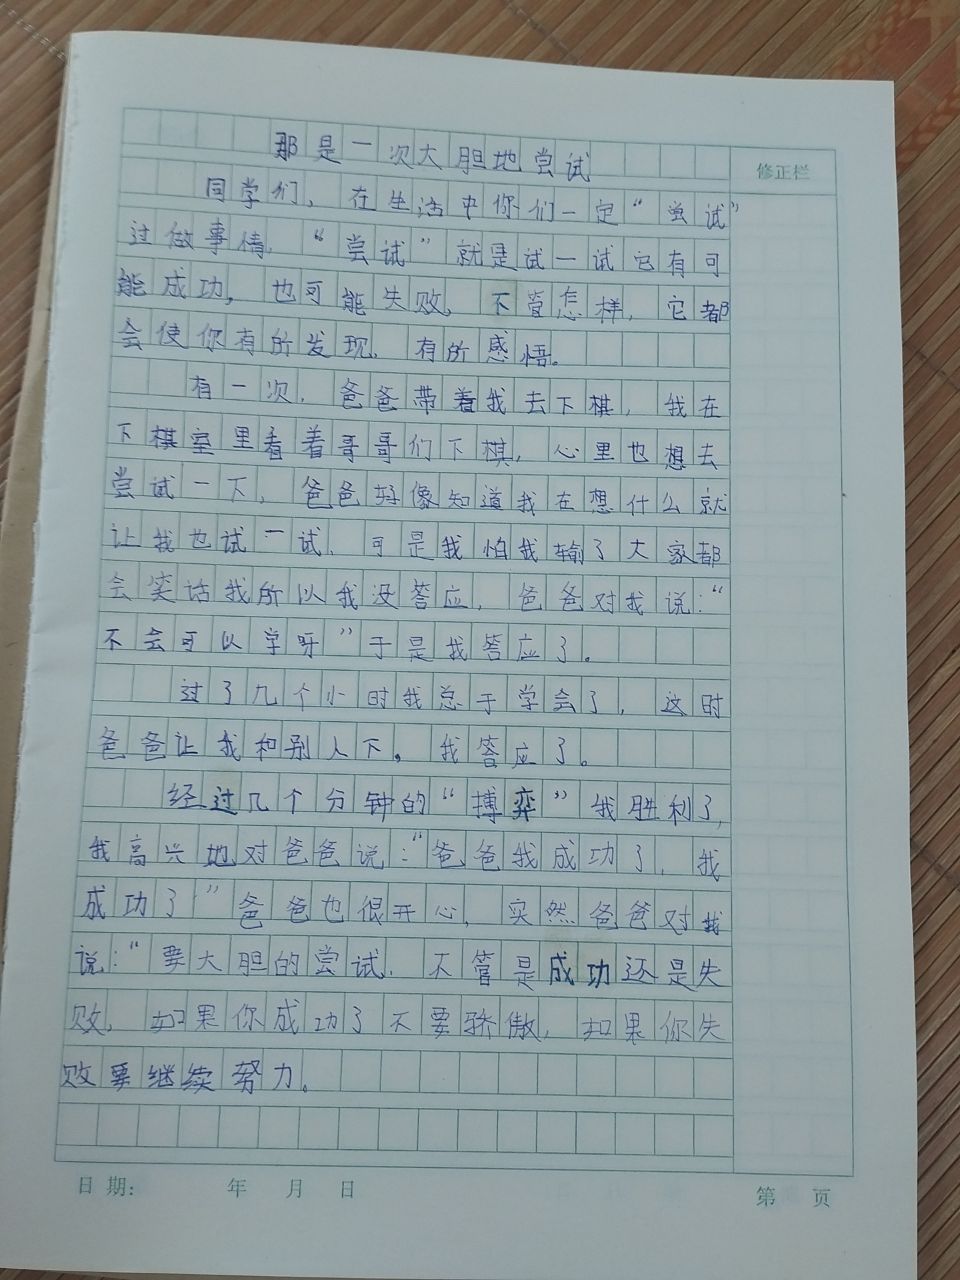 那是一次大胆地尝试
修正栏
同学们，在生活中你们一定“尝试”
过做事情，“尝试”就是试一试它有可
能成功，也可能失败，不管怎样，它都
会使你有所发现，有所感悟。
有一次，爸爸带着我去下棋，我在
下棋室里看着哥哥们下棋，心里也想去
尝试一下，爸爸好像知道我在想什么就
让我也试一试，可是我怕我输了大家都
会笑话我所以我没答应，爸爸对我说：“
不会可以学呀”于是我答应了。
过了几个小时我总于学会了，这时
爸爸让我和别人下。我答应了。
经过几个分钟的“搏弈”我胜利了，
我高兴地对爸爸说：“爸爸我成功了，我
成功了”爸爸也很开心，突然爸爸对我
说：“要大胆的尝试，不管是成功还是失
败，如果你成功了不要骄傲，如果你失
败要继续努力。
日期： 年 月 日
第 页